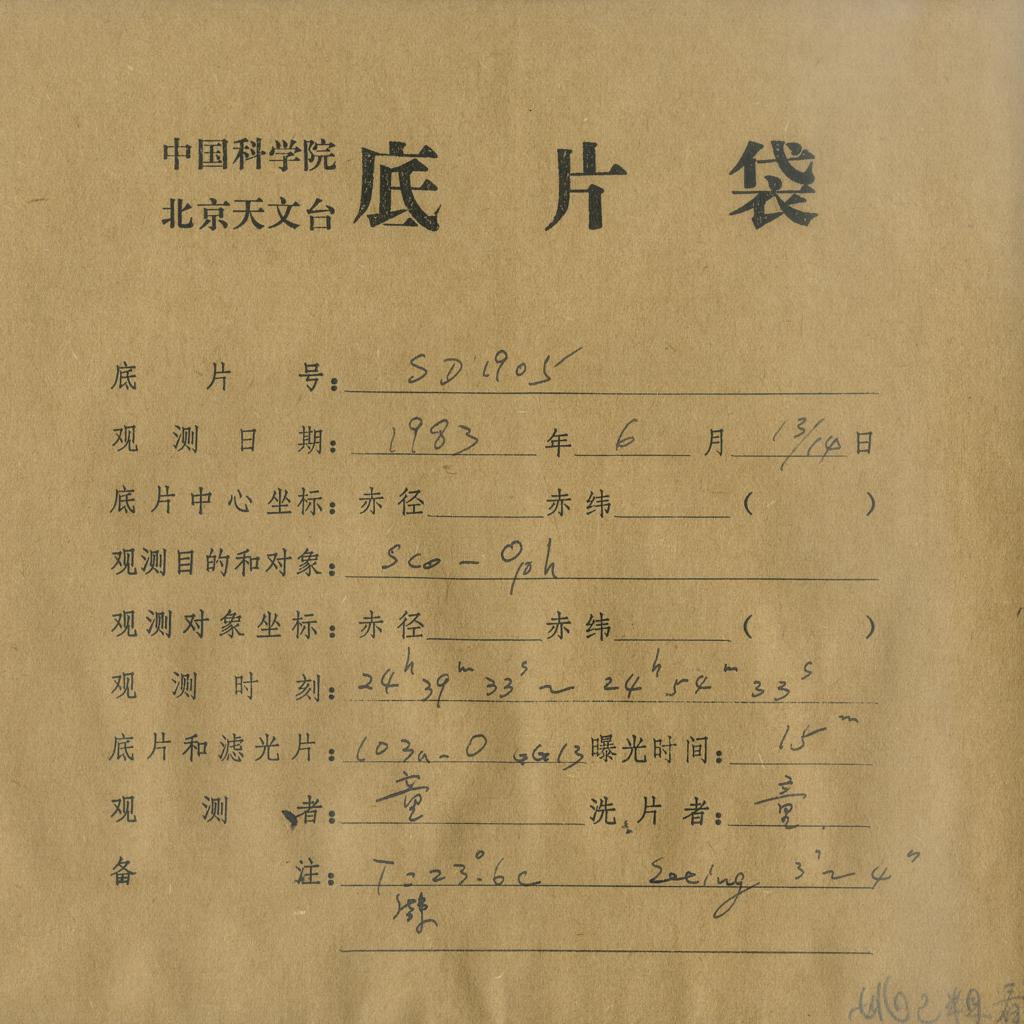 中国科学院
北京天文台
底片袋
底片号：SD1905
观测日期：1983年6月13/14日
底片中心坐标：赤径 赤纬 （ ）
观测目的和对象：Sco - Oph
观测对象坐标：赤径 赤纬 （ ）
观测时刻：24h39m33s～24h54m33s
底片和滤光片：103a-O GG13 曝光时间：15m
观测者：童 洗片者：童
备注：T=23°.6c Seeing 3"～4"